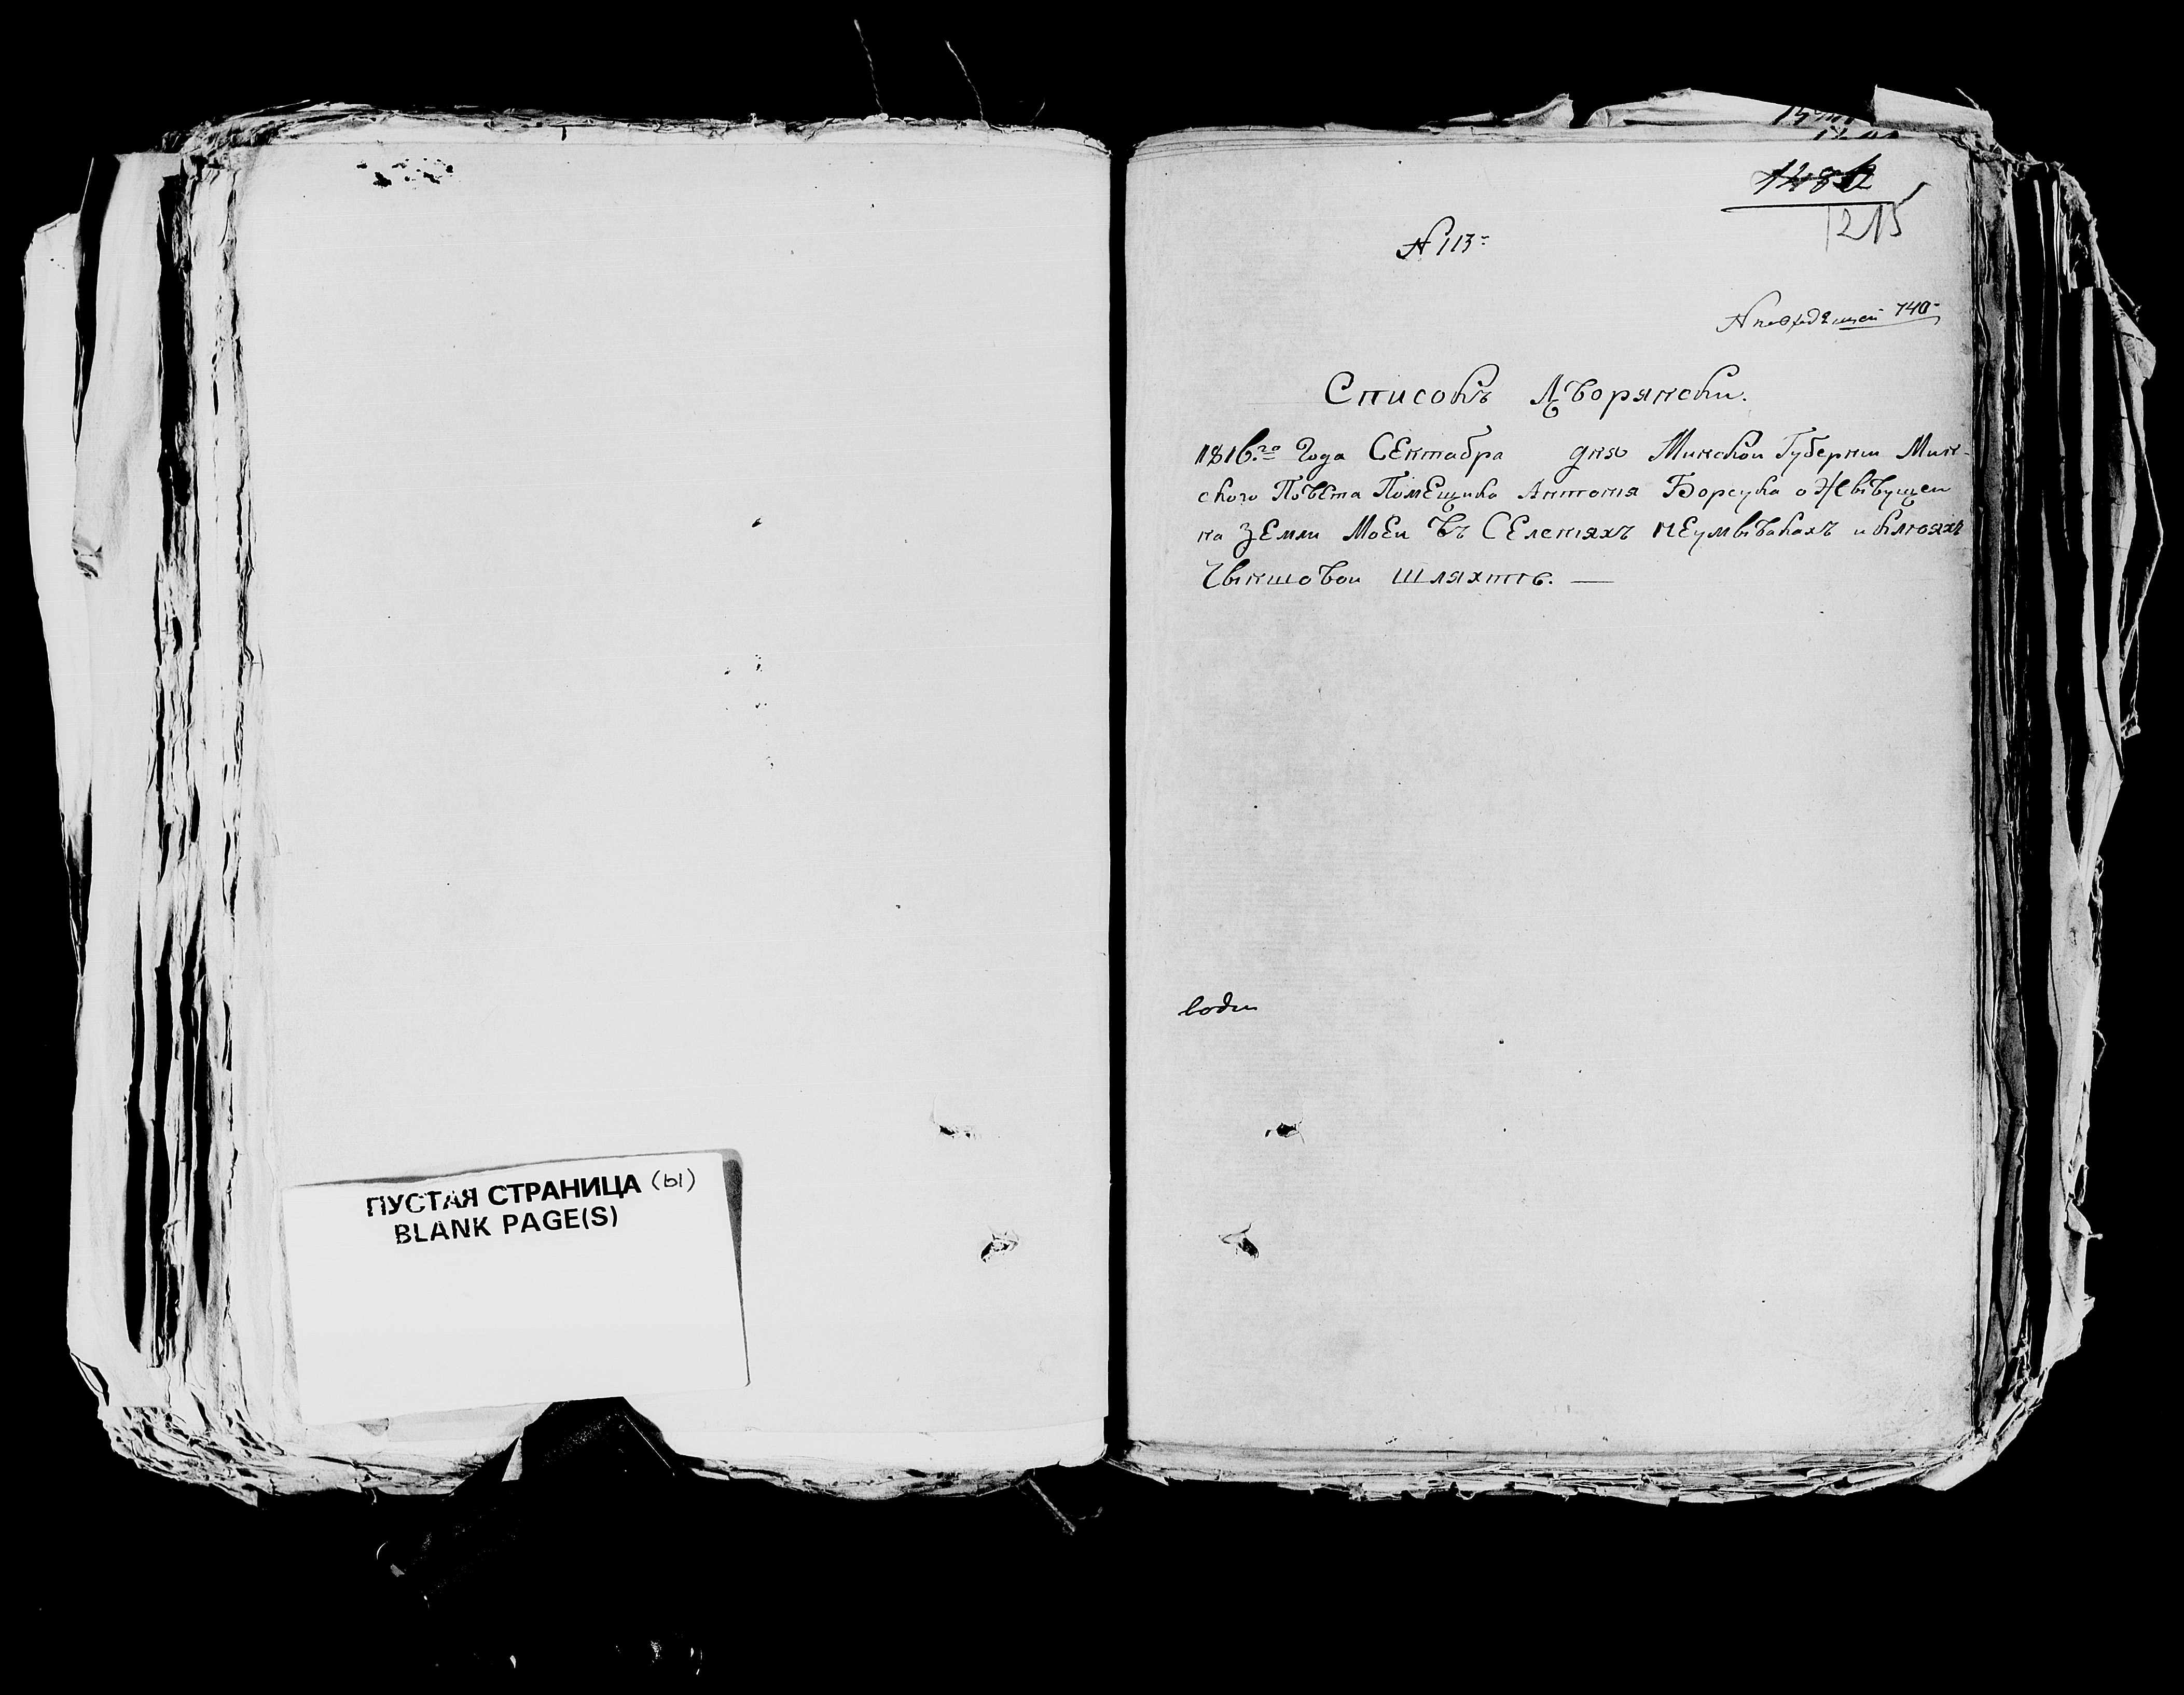 ПУСТАЯ СТРАНИЦА (ы)
BLANK PAGE(S)
1215
N 113
N по входящей 740
Списокъ Дворянски.
1816го Года Сентабра дня Минской Губернии Мин-
ского Повѣта Помещика Антонія Борсука о Жывущеи
на Земли Моеи Въ Селеніяхъ
Чыншовои Шляхтѣ. —